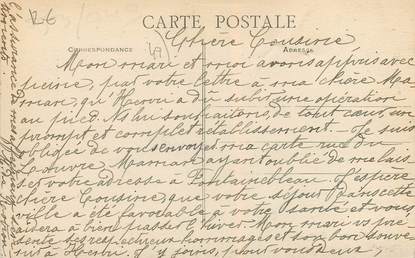 R6
CARTE POSTALE
CORRESPONDANCE
ADRESSE
Chère Cousine
Mon mari et moi avons appris avec
peine, par votre lettre à ma chère Ma
man, qu'Hervé a dû subir une opération
au pied. Ns lui souhaitons, de tout cœur, un
prompt et complet rétablissement. — Je suis
obligée de vous envoyer ma carte rue du
Louvre Maman ayant oublié de me lais-
ser votre adresse à Fontainebleau. J'espère
chère Cousine, que votre séjour dans cette
ville a été favorable à votre santé et vous
aidera à bien passer l'hiver. Mon mari vs pré-
sente ses respectueux hommages et son bon souve-
nir à Hervé. J'y joins, pour vous deux,
l'assurance de mes